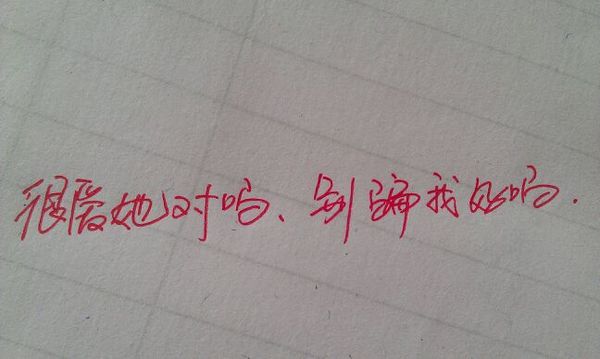 很爱她对吗、别骗我好吗.